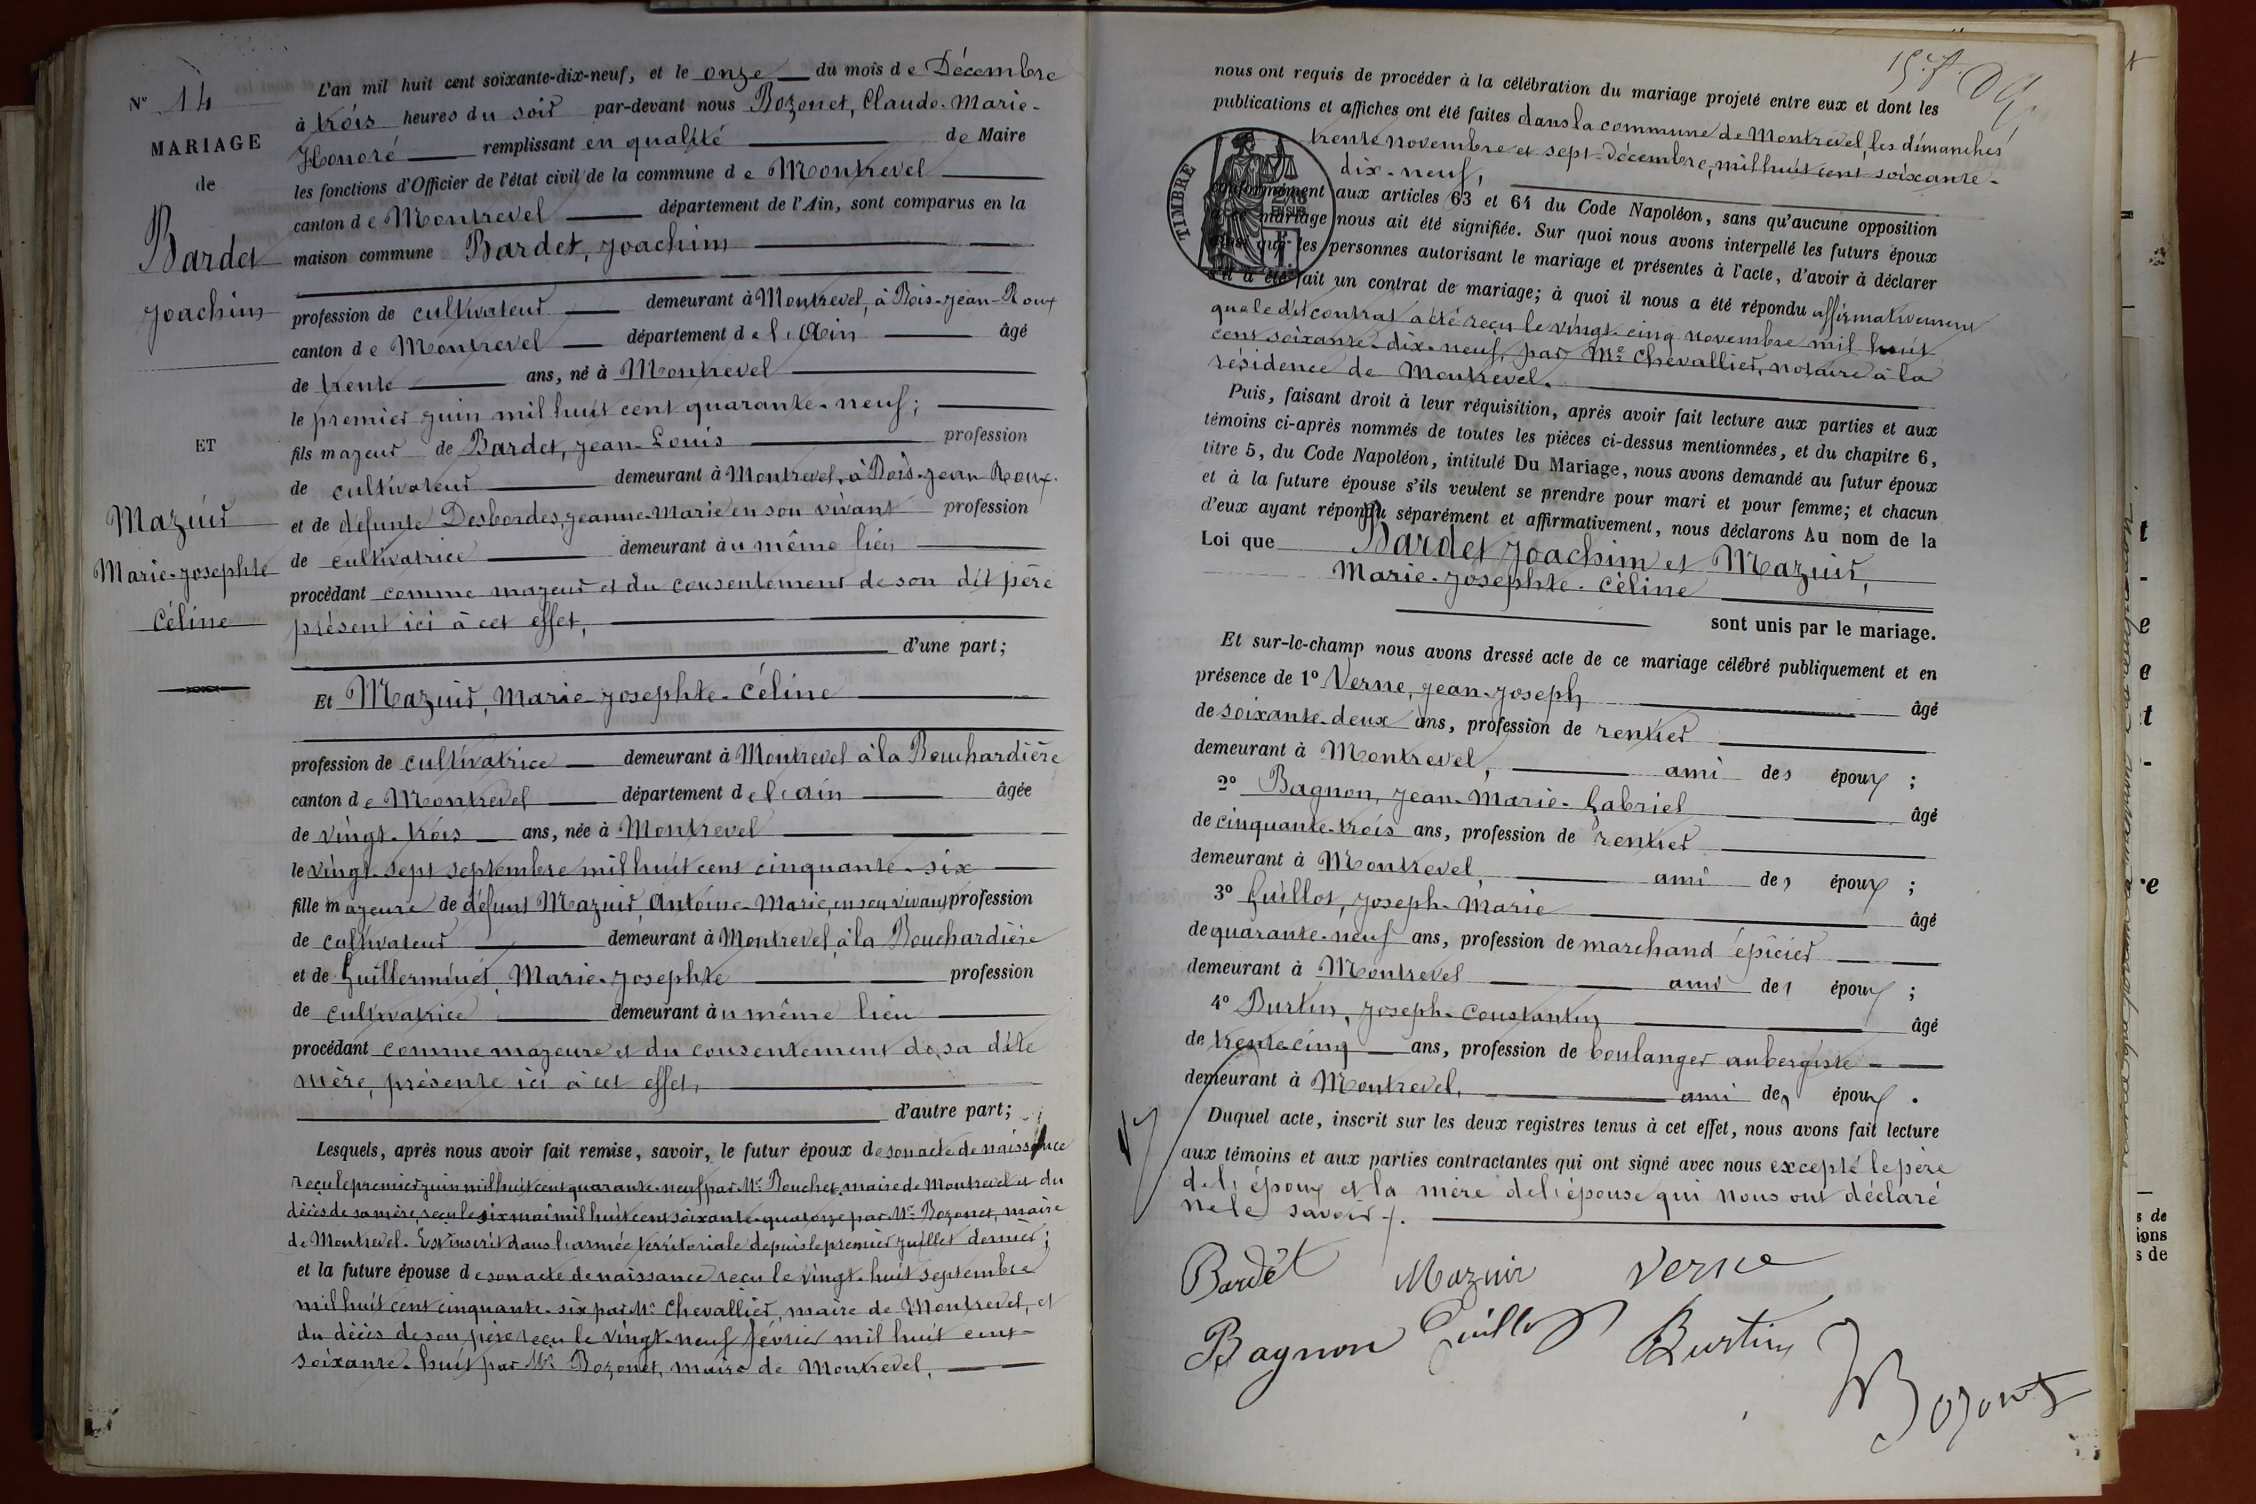 N° 14
MARIAGE
de
Bardet
Joachim
ET
Mazuir
Marie-Josephte
Céline
L'an mil huit cent soixante-dix-neuf, et le onze du mois de Décembre
à trois heures du soir par-devant nous Bozonet, Claude-Marie-
Honoré remplissant en qualité de Maire
les fonctions d'Officier de l'état civil de la commune de Montrevel
canton de Montrevel département de l'Ain, sont comparus en la
maison commune Bardet, Joachim
profession de cultivateur demeurant à Montrevel, à Bois-Jean-Roux
canton de Montrevel département de l'Ain âgé
de trente ans, né à Montrevel
le premier juin mil huit cent quarante-neuf;
fils majeur de Bardet, Jean-Louis profession
de cultivateur demeurant à Montrevel, à Bois-Jean Roux.
et de défunte Desbordes, Jeanne-Marie en son vivant profession
de cultivatrice demeurant au même lieu
procédant comme majeur et du consentement de son dit père
présent ici à cet effet,
d'une part;
Et Mazuir, Marie-Josephte-Céline
profession de cultivatrice demeurant à Montrevel à la Bouchardière
canton de Montrevel département de l'Ain âgée
de vingt-trois ans, née à Montrevel
le vingt-sept septembre mil huit cent cinquante-six
fille majeure de défunt Mazuir, Antoine-Marie, en son vivant profession
de cultivateur demeurant à Montrevel, à la Bouchardière
et de Guillerminet, Marie-Josephte profession
de cultivatrice demeurant au même lieu
procédant comme majeure et du consentement de sa dite
mère, présente ici à cet effet,
d'autre part;
Lesquels, après nous avoir fait remise, savoir, le futur époux de son acte de naissance
reçu le premier juin mil huit cent quarante-neuf par Mr Bouchet, maire de Montrevel et du
décès de sa mère, reçu le six mai mil huit cent soixante-quatorze par Mr Bozonet, maire
de Montrevel. Est inscrit dans l'armée territoriale depuis le premier juillet dernier;
et la future épouse de son acte de naissance reçu le vingt-huit septembre
mil huit cent cinquante-six par Mr Chevallier, maire de Montrevel, et
du décès de son père reçu le vingt-neuf février mil huit cent-
soixante-huit par Mr Bozonet, maire de Montrevel.
nous ont requis de procéder à la célébration du mariage projeté entre eux et dont les
publications et affiches ont été faites dans la commune de Montrevel, les dimanches
trente novembre et sept-Décembre, mil huit cent soixante-
dix-neuf,
TIMBRE
conformément aux articles 63 et 64 du Code Napoléon, sans qu'aucune opposition
mariage nous ait été signifiée. Sur quoi nous avons interpellé les futurs époux
que les personnes autorisant le mariage et présentes à l'acte, d'avoir à déclarer
s'il a été fait un contrat de mariage; à quoi il nous a été répondu affirmativement
que le dit contrat a été reçu le vingt-cinq novembre mil huit
cent soixante-dix-neuf, par Me Chevallier, notaire à la
résidence de Montrevel.
Puis, faisant droit à leur réquisition, après avoir fait lecture aux parties et aux
témoins ci-après nommés de toutes les pièces ci-dessus mentionnées, et du chapitre 6,
titre 5, du Code Napoléon, intitulé Du Mariage, nous avons demandé au futur époux
et à la future épouse s'ils veulent se prendre pour mari et pour femme; et chacun
d'eux ayant répondu séparément et affirmativement, nous déclarons Au nom de la
Loi que Bardet Joachim et Mazuir,
Marie-Josephte-Céline
sont unis par le mariage.
Et sur-le-champ nous avons dressé acte de ce mariage célébré publiquement et en
présence de 1° Verne, Jean-Joseph âgé
de soixante-deux ans, profession de rentier
demeurant à Montrevel, ami des époux ;
2° Bagnon, Jean-Marie-Gabriel âgé
de cinquante-trois ans, profession de rentier
demeurant à Montrevel, ami des époux ;
3° Guillot, Joseph-Marie âgé
de quarante-neuf ans, profession de marchand épicier
demeurant à Montrevel ami des époux ;
4° Burtin, Joseph-Constantin âgé
de trente-cinq ans, profession de boulanger aubergiste
demeurant à Montrevel, ami des époux .
Duquel acte, inscrit sur les deux registres tenus à cet effet, nous avons fait lecture
aux témoins et aux parties contractantes qui ont signé avec nous excepté le père
de l'époux et la mère de l'épouse qui nous ont déclaré
ne le savoir.
Bardet Mazuir Verne
Bagnon Guillot Burtin
Bozonet